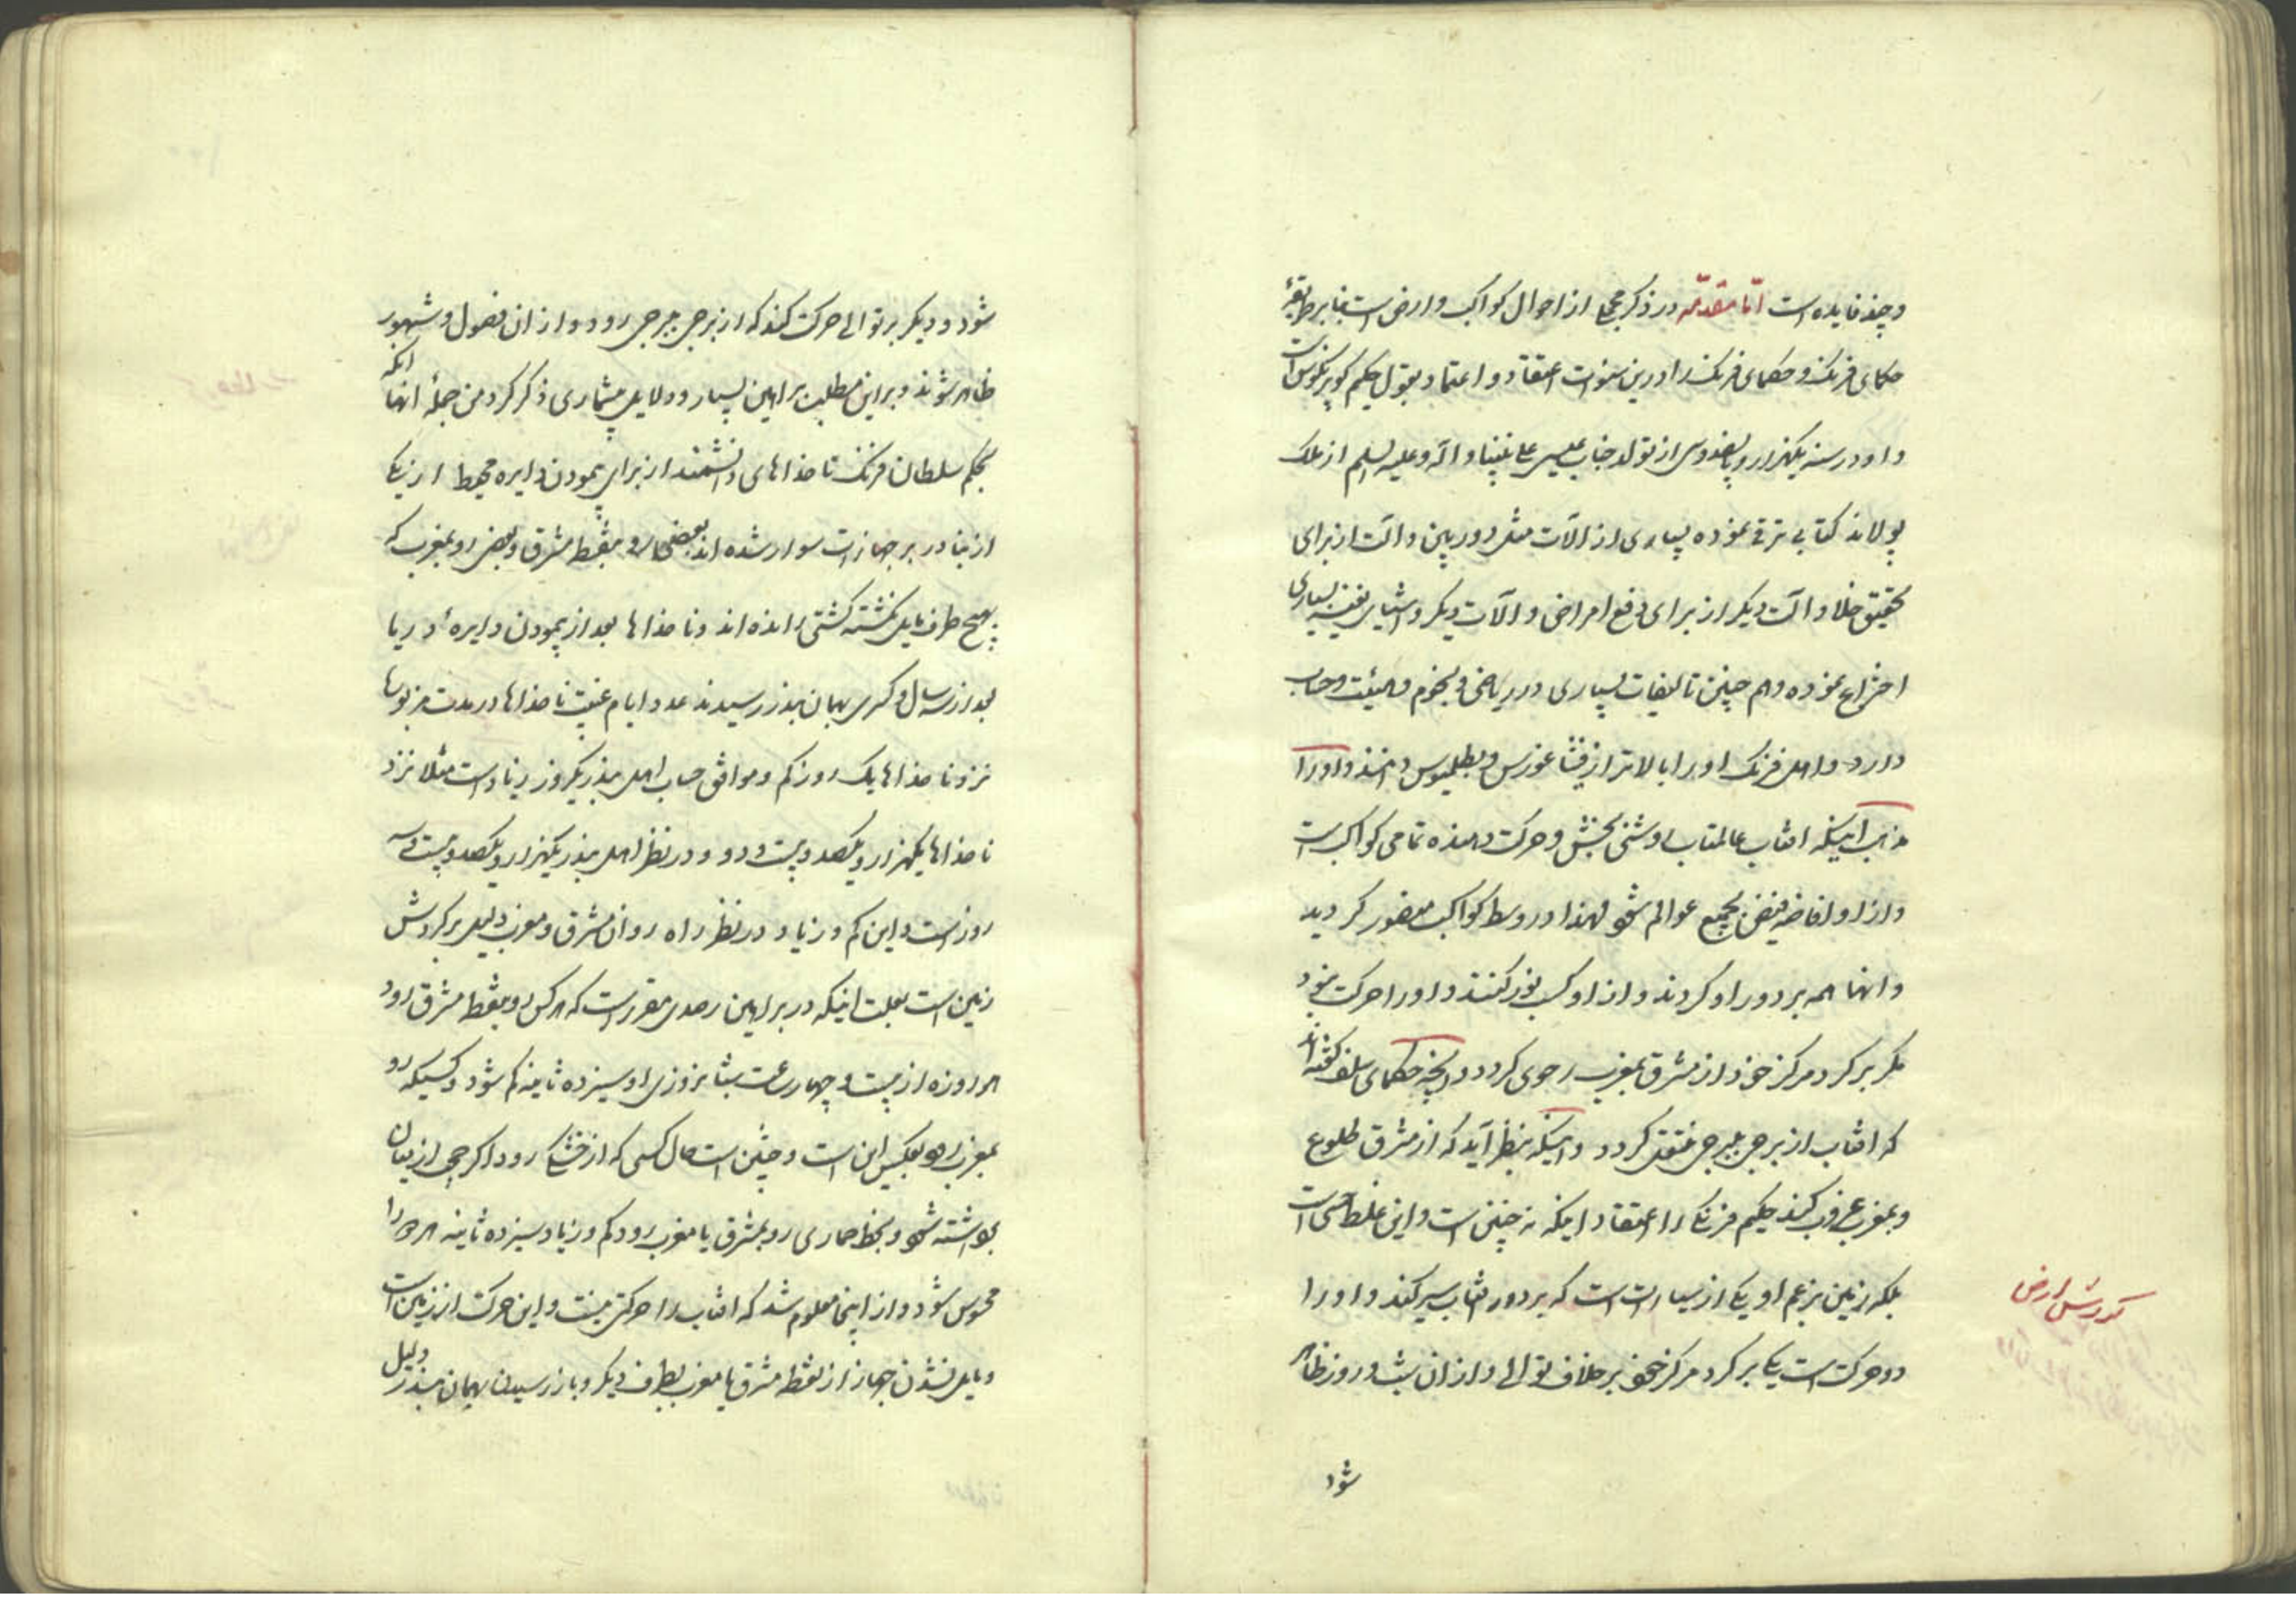 و چند فایده است امّا مقدّمه در ذکر مجملی از احوال کواکب و ارض است بنا بر طریقهٔ
حکمای فرنک و حکمای فرنک را درین سنوات اعتقاد و اعتماد بقول حکیم کوپرنکوس است
و او در سنه یکهزار و پانصد و سی از تولد جناب عیسی علی نبینا و اله و علیه السلم از ملک
پولاند کتابی ترقی نموده بسیاری از الات مثل دوربین و الت از برای
تحقیق خلا و الت دیکر از برای دفع امراض و الات دیکر و اشیای نفیسه بسیاری
اختراع نموده و هم چنین تالیفات بسیاری در ریاضی و نجوم و هیئت و حساب
دارد و اهل فرنک او را بالاتر از فیثاغورس و بطلمیوس دانند و او را
مذهب اینکه افتاب عالمتاب روشنی بخش و حرکت دهنده تمامی کواکب است
و از او افاضه فیض بجمیع عوالم شود لهذا در وسط کواکب محصور کردید
و انها همه بر دور او کردند و از او کسب نور کنند و او را حرکت نبود
مکر بر کرد مرکز خود از مشرق بمغرب رحوی کردد و انچه حکمای سلف کفته اند
که افتاب از برجی ببرجی منتقل کردد و اینکه بنظر آید که از مشرق طلوع
و بمغرب غروب کند حکیم فرنکی را اعتقاد اینکه نه چنین است و این غلط حس است
بلکه زمین بزعم او یکی از سیارات است که بر دور افتاب سیر کند و او را
دو حرکت است یکی بر کرد مرکز خود بر خلاف توالی و از ان شب و روز ظاهر
کردش ارض
شود
شود و دیکر بر توالی حرکت کند که از برجی ببرجی رود و از ان فصول و شهور
ظاهر شوند و بر این مطلب براهین بسیار و دلایل بیشماری ذکر کرد من جملهٔ انها انکه
بحکم سلطان فرنک ناخداهای دانشمند از برای پیمودن دایره محیط ار یکی
از بنادر بر جهازات سوار شده اند بعضی رو بنقطه مشرق و بعضی رو بمغرب که
بهیچ طرف مایل نکشته کشتی رانده اند و ناخداها بعد از پیمودن دایرهٔ دریا
بعد از سه سال و کسری بهمان بندر رسیدند عدد ایام غیبت ناخداها در مدت مزبورها
نزد ناخداها یک روز کم و موافق حساب اهل بندر یکروز زیاد است مثلا نزد
ناخداها یکهزار و یکصد و بیست و دو و در نظر اهل بندر یکهزار و یکصد و بیست و سه
روز است و این کم و زیاد در نظر راه روان مشرق و مغرب دلیل بر کردش
زمین است بعلت اینکه در براهین رصدی مقرر است که هر کس رو بنقطه مشرق رود
هر روزه از بیست و چهار ساعت شبانروزی او سیزده ثانیه کم شود و کسیکه رو
بمغرب رود بعکس این است و چنین است حال کسی که از خشکی رود اکر جبال از میان
برداشته شود و بخط حماری رو بمشرق یا مغرب رود کم و زیاد سیزده ثانیه هر روز را
محسوس شود و از اینجا معلوم شد که افتاب را حرکتی نیست و این حرکت از زمین است
و مایل نشدن جهاز از نقطه مشرق یا مغرب بطرف دیکر و باز رسیدن بهمان بندر دلیل